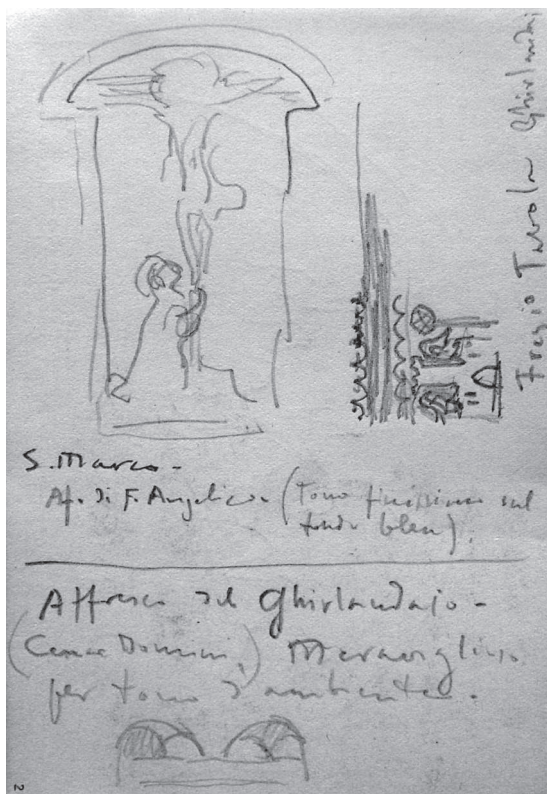 Fregio Tavola Ghirlandai
S. Marco -
Af. di F. Angelico - (Tono finissimo sul
fondo bleu).
Affresco del Ghirlandajo -
(Cenae Domini,) Meraviglioso
per tono d'ambiente.
2